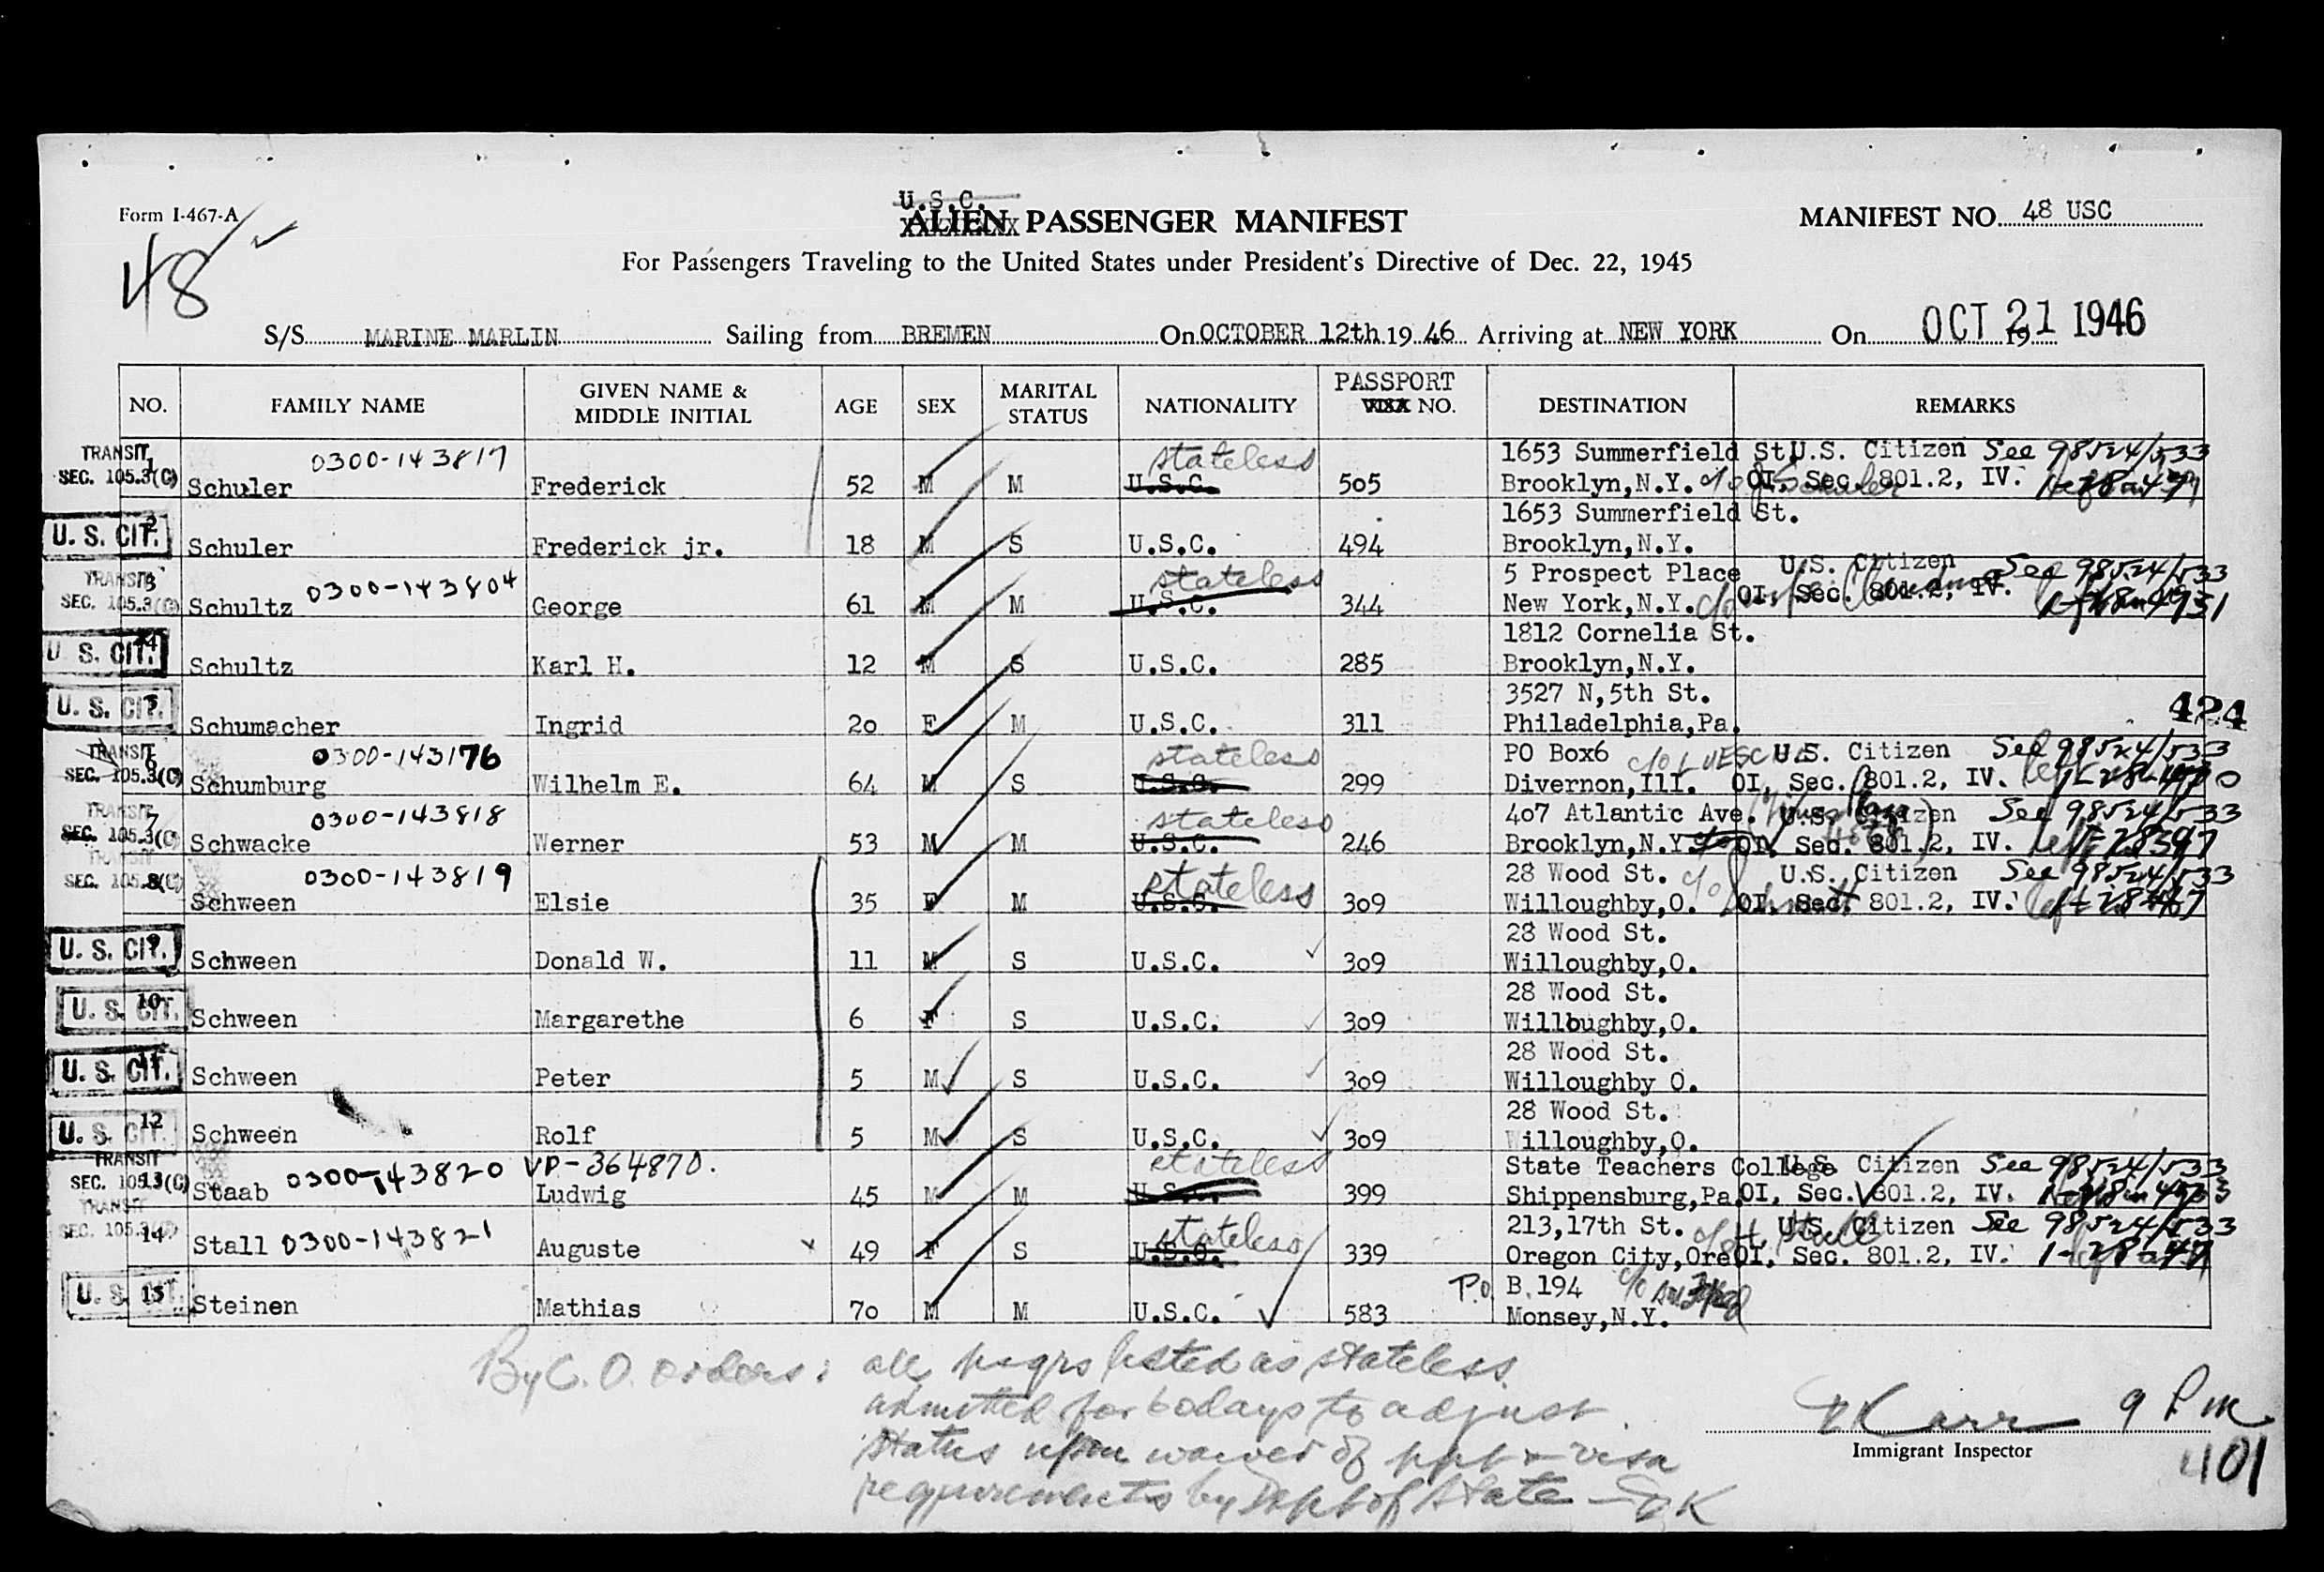 Form I-467-A
48
U.S.C.
ALIEN PASSENGER MANIFEST
MANIFEST NO. 48 USC
For Passengers Traveling to the United States under President's Directive of Dec. 22, 1945
S/S MARINE MARLIN Sailing from BREMEN On OCTOBER 12th 19 46 Arriving at NEW YORK On OCT 21 1946
NO. FAMILY NAME GIVEN NAME & MIDDLE INITIAL AGE SEX MARITAL STATUS NATIONALITY PASSPORT NO. DESTINATION REMARKS
TRANSIT 0300-143817 stateless 1653 Summerfield St U.S. Citizen See 98524/533
SEC. 105.3(C) 1 Schuler Frederick 52 M M U.S.C. 505 Brooklyn,N.Y. c/o Schuler OI, Sec. 801.2, IV.
1653 Summerfield St.
U. S. CIT. 2 Schuler Frederick jr. 18 M S U.S.C. 494 Brooklyn,N.Y.
TRANSIT 3 0300-143804 stateless 5 Prospect Place U.S. Citizen See 98524/533
SEC. 105.3(C) Schultz George 61 M M U.S.C. 344 New York,N.Y. c/o OI, Sec. 801.2, IV.
1812 Cornelia St.
U. S. CIT. 4 Schultz Karl H. 12 M S U.S.C. 285 Brooklyn,N.Y.
3527 N,5th St.
U. S. CIT. 5 Schumacher Ingrid 20 F M U.S.C. 311 Philadelphia,Pa. 424
TRANSIT 6 0300-143176 stateless PO Box6 c/o U.S. Citizen See 98524/533
SEC. 105.3(C) Schumburg Wilhelm E. 64 M S U.S.C. 299 Divernon,Ill. OI, Sec. 801.2, IV.
TRANSIT 7 0300-143818 stateless 407 Atlantic Ave. U.S. Citizen See 98524/533
SEC. 105.3(C) Schwacke Werner 53 M M U.S.C. 246 Brooklyn,N.Y. OI, Sec. 801.2, IV.
TRANSIT 0300-143819 stateless 28 Wood St. c/o U.S. Citizen See 98524/533
SEC. 105.3(C) 8 Schween Elsie 35 F M U.S.C. 309 Willoughby,O. OI, Sec. 801.2, IV.
28 Wood St.
U. S. CIT. 9 Schween Donald W. 11 M S U.S.C. 309 Willoughby,O.
28 Wood St.
U. S. CIT. 10 Schween Margarethe 6 F S U.S.C. 309 Willoughby,O.
28 Wood St.
U. S. CIT. 11 Schween Peter 5 M S U.S.C. 309 Willoughby O.
28 Wood St.
U. S. CIT. 12 Schween Rolf 5 M S U.S.C. 309 Willoughby,O.
TRANSIT 0300-143820 VD-364870. stateless State Teachers College U.S. Citizen See 98524/533
SEC. 105.3(C) 13 Staab Ludwig 45 M M U.S.C. 399 Shippensburg,Pa. OI, Sec. 801.2, IV.
TRANSIT stateless 213,17th St. c/o H. Stall U.S. Citizen See 98524/533
SEC. 105.3(C) 14 Stall 0300-143821 Auguste 49 F S U.S.C. 339 Oregon City,Ore OI, Sec. 801.2, IV.
P.O. B.194 c/o
U. S. CIT. 15 Steinen Mathias 70 M M U.S.C. 583 Monsey,N.Y.
By C.O. orders: all psgrs listed as stateless
admitted for 60 days to adjust
status upon waiver of ppt & visa
requirements by Dept of State
9 Pm
Immigrant Inspector
401